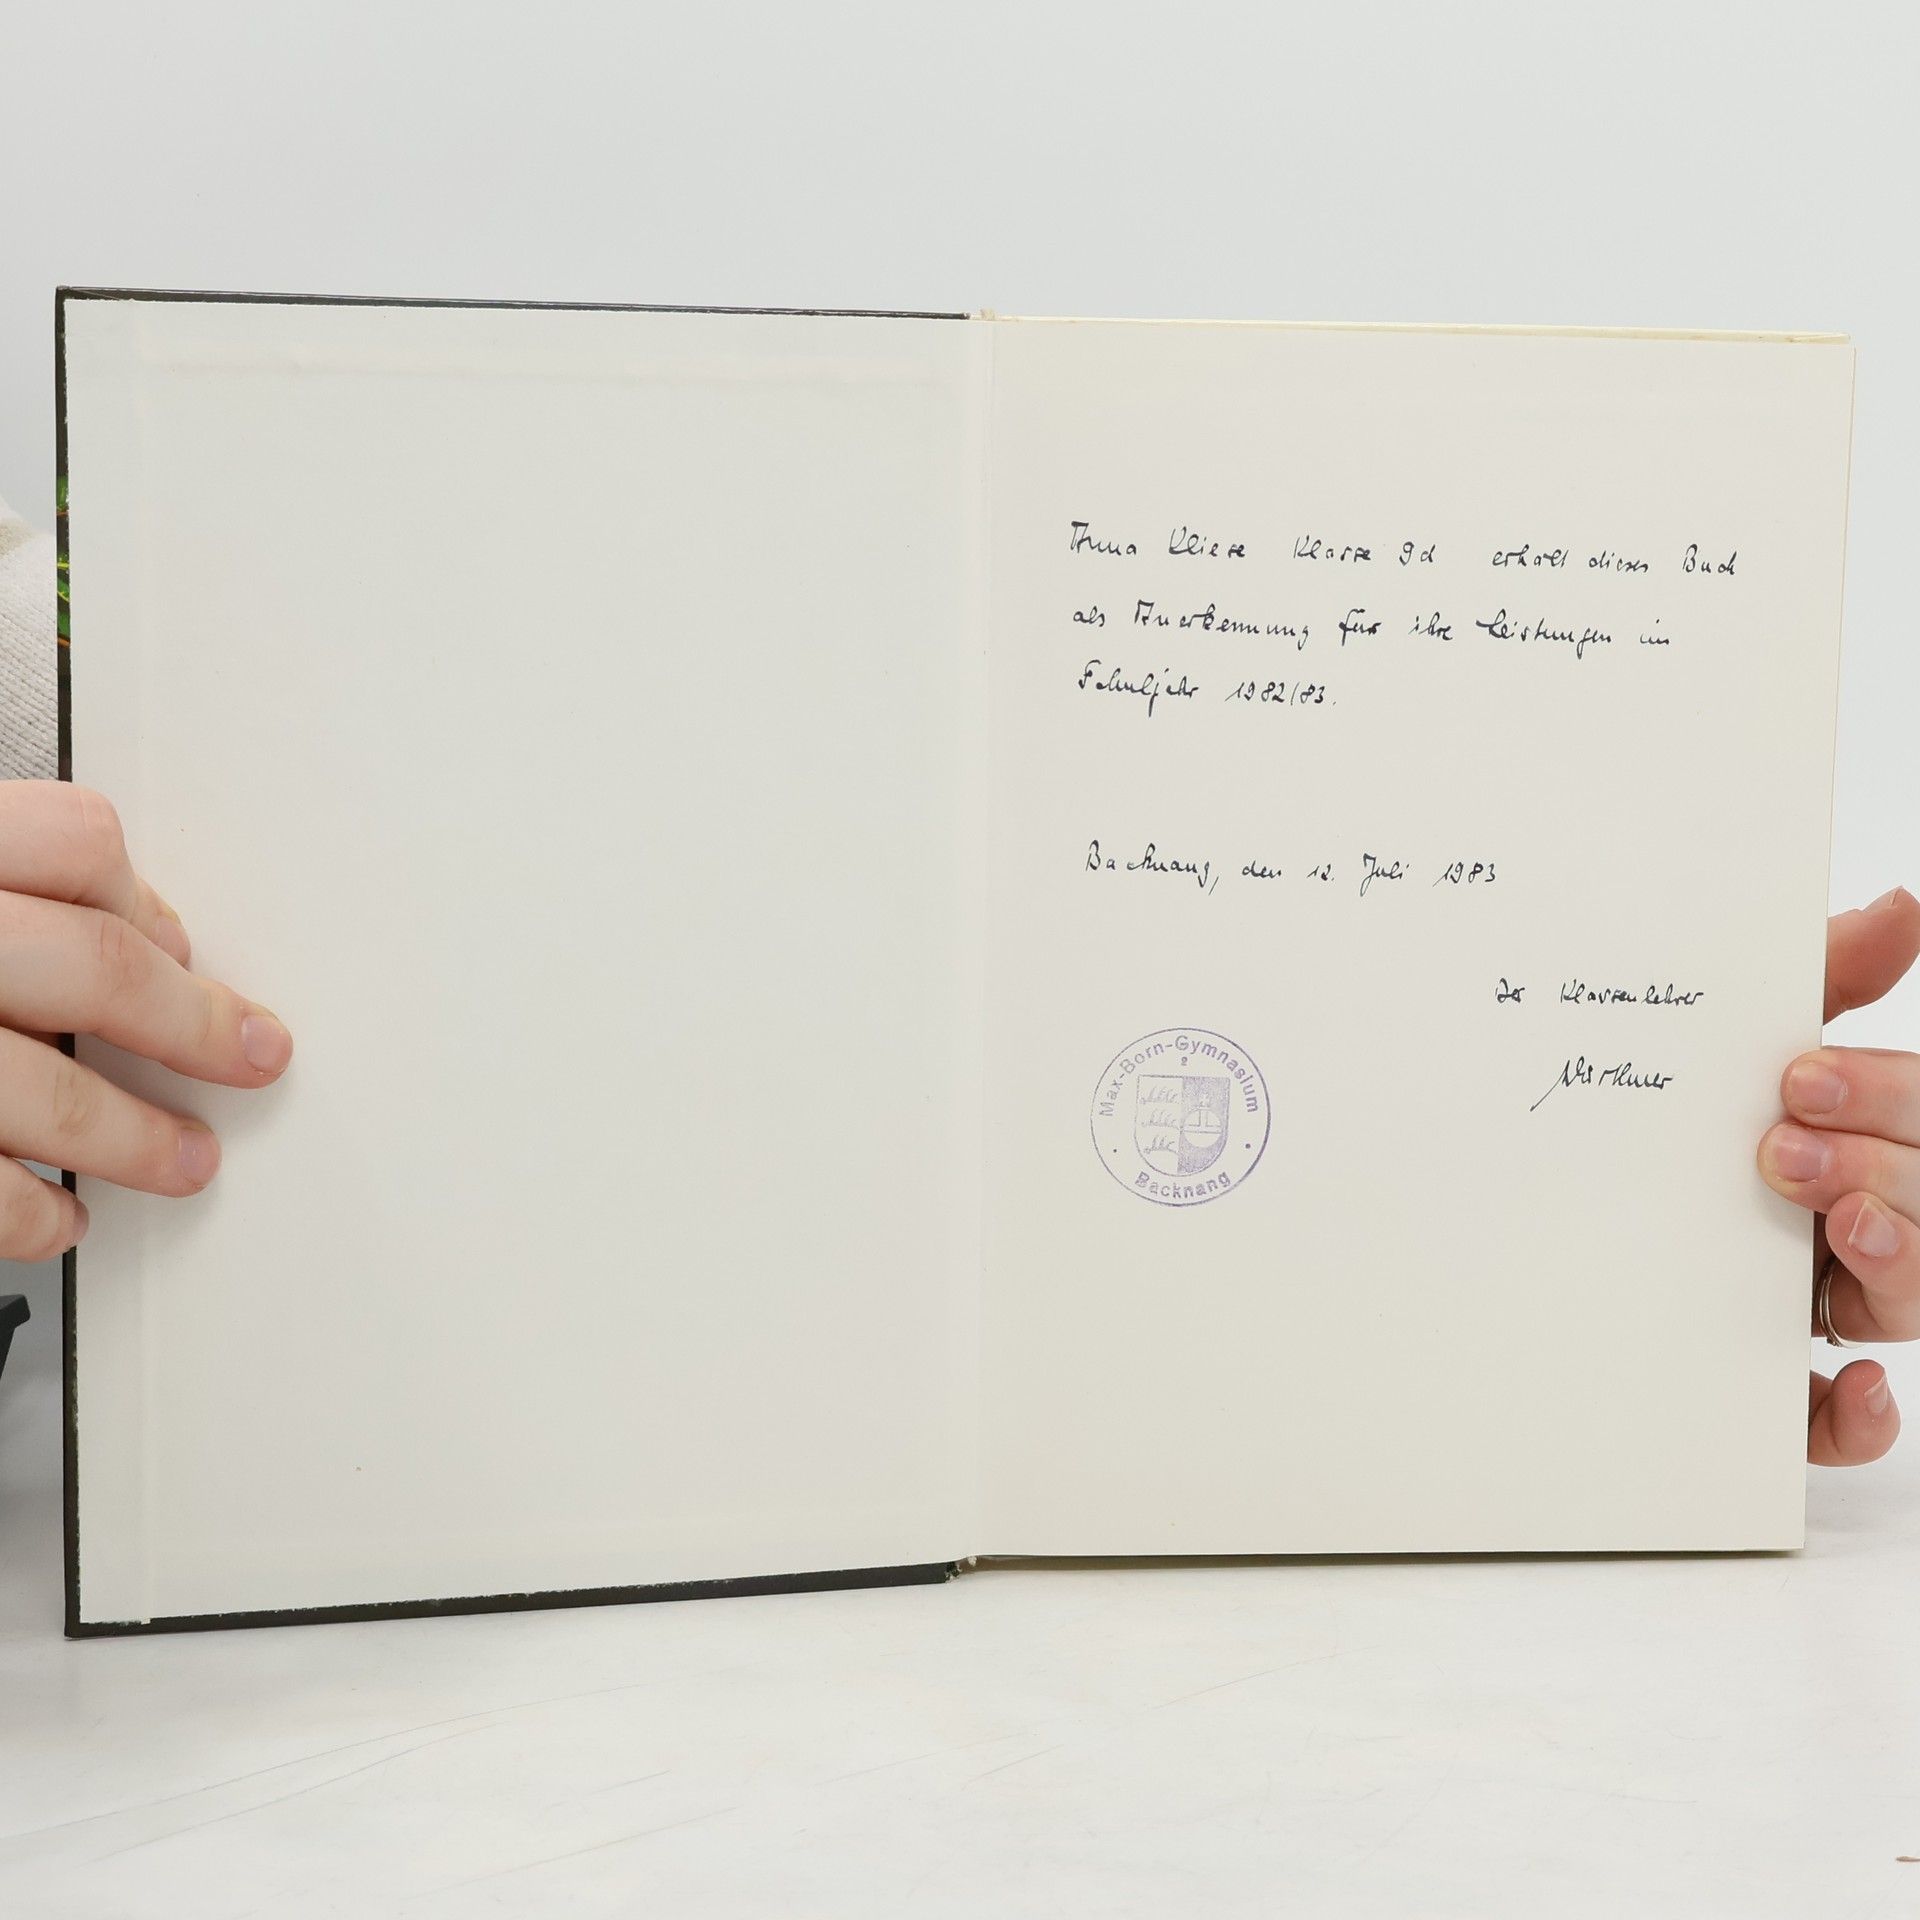 Anna Kliese Klasse 9d erhält dieses Buch
als Anerkennung für ihre Leistungen im
Schuljahr 1982/83.
Backnang, den 12. Juli 1983
Der Klassenlehrer
Max-Born-Gymnasium
2
Backnang